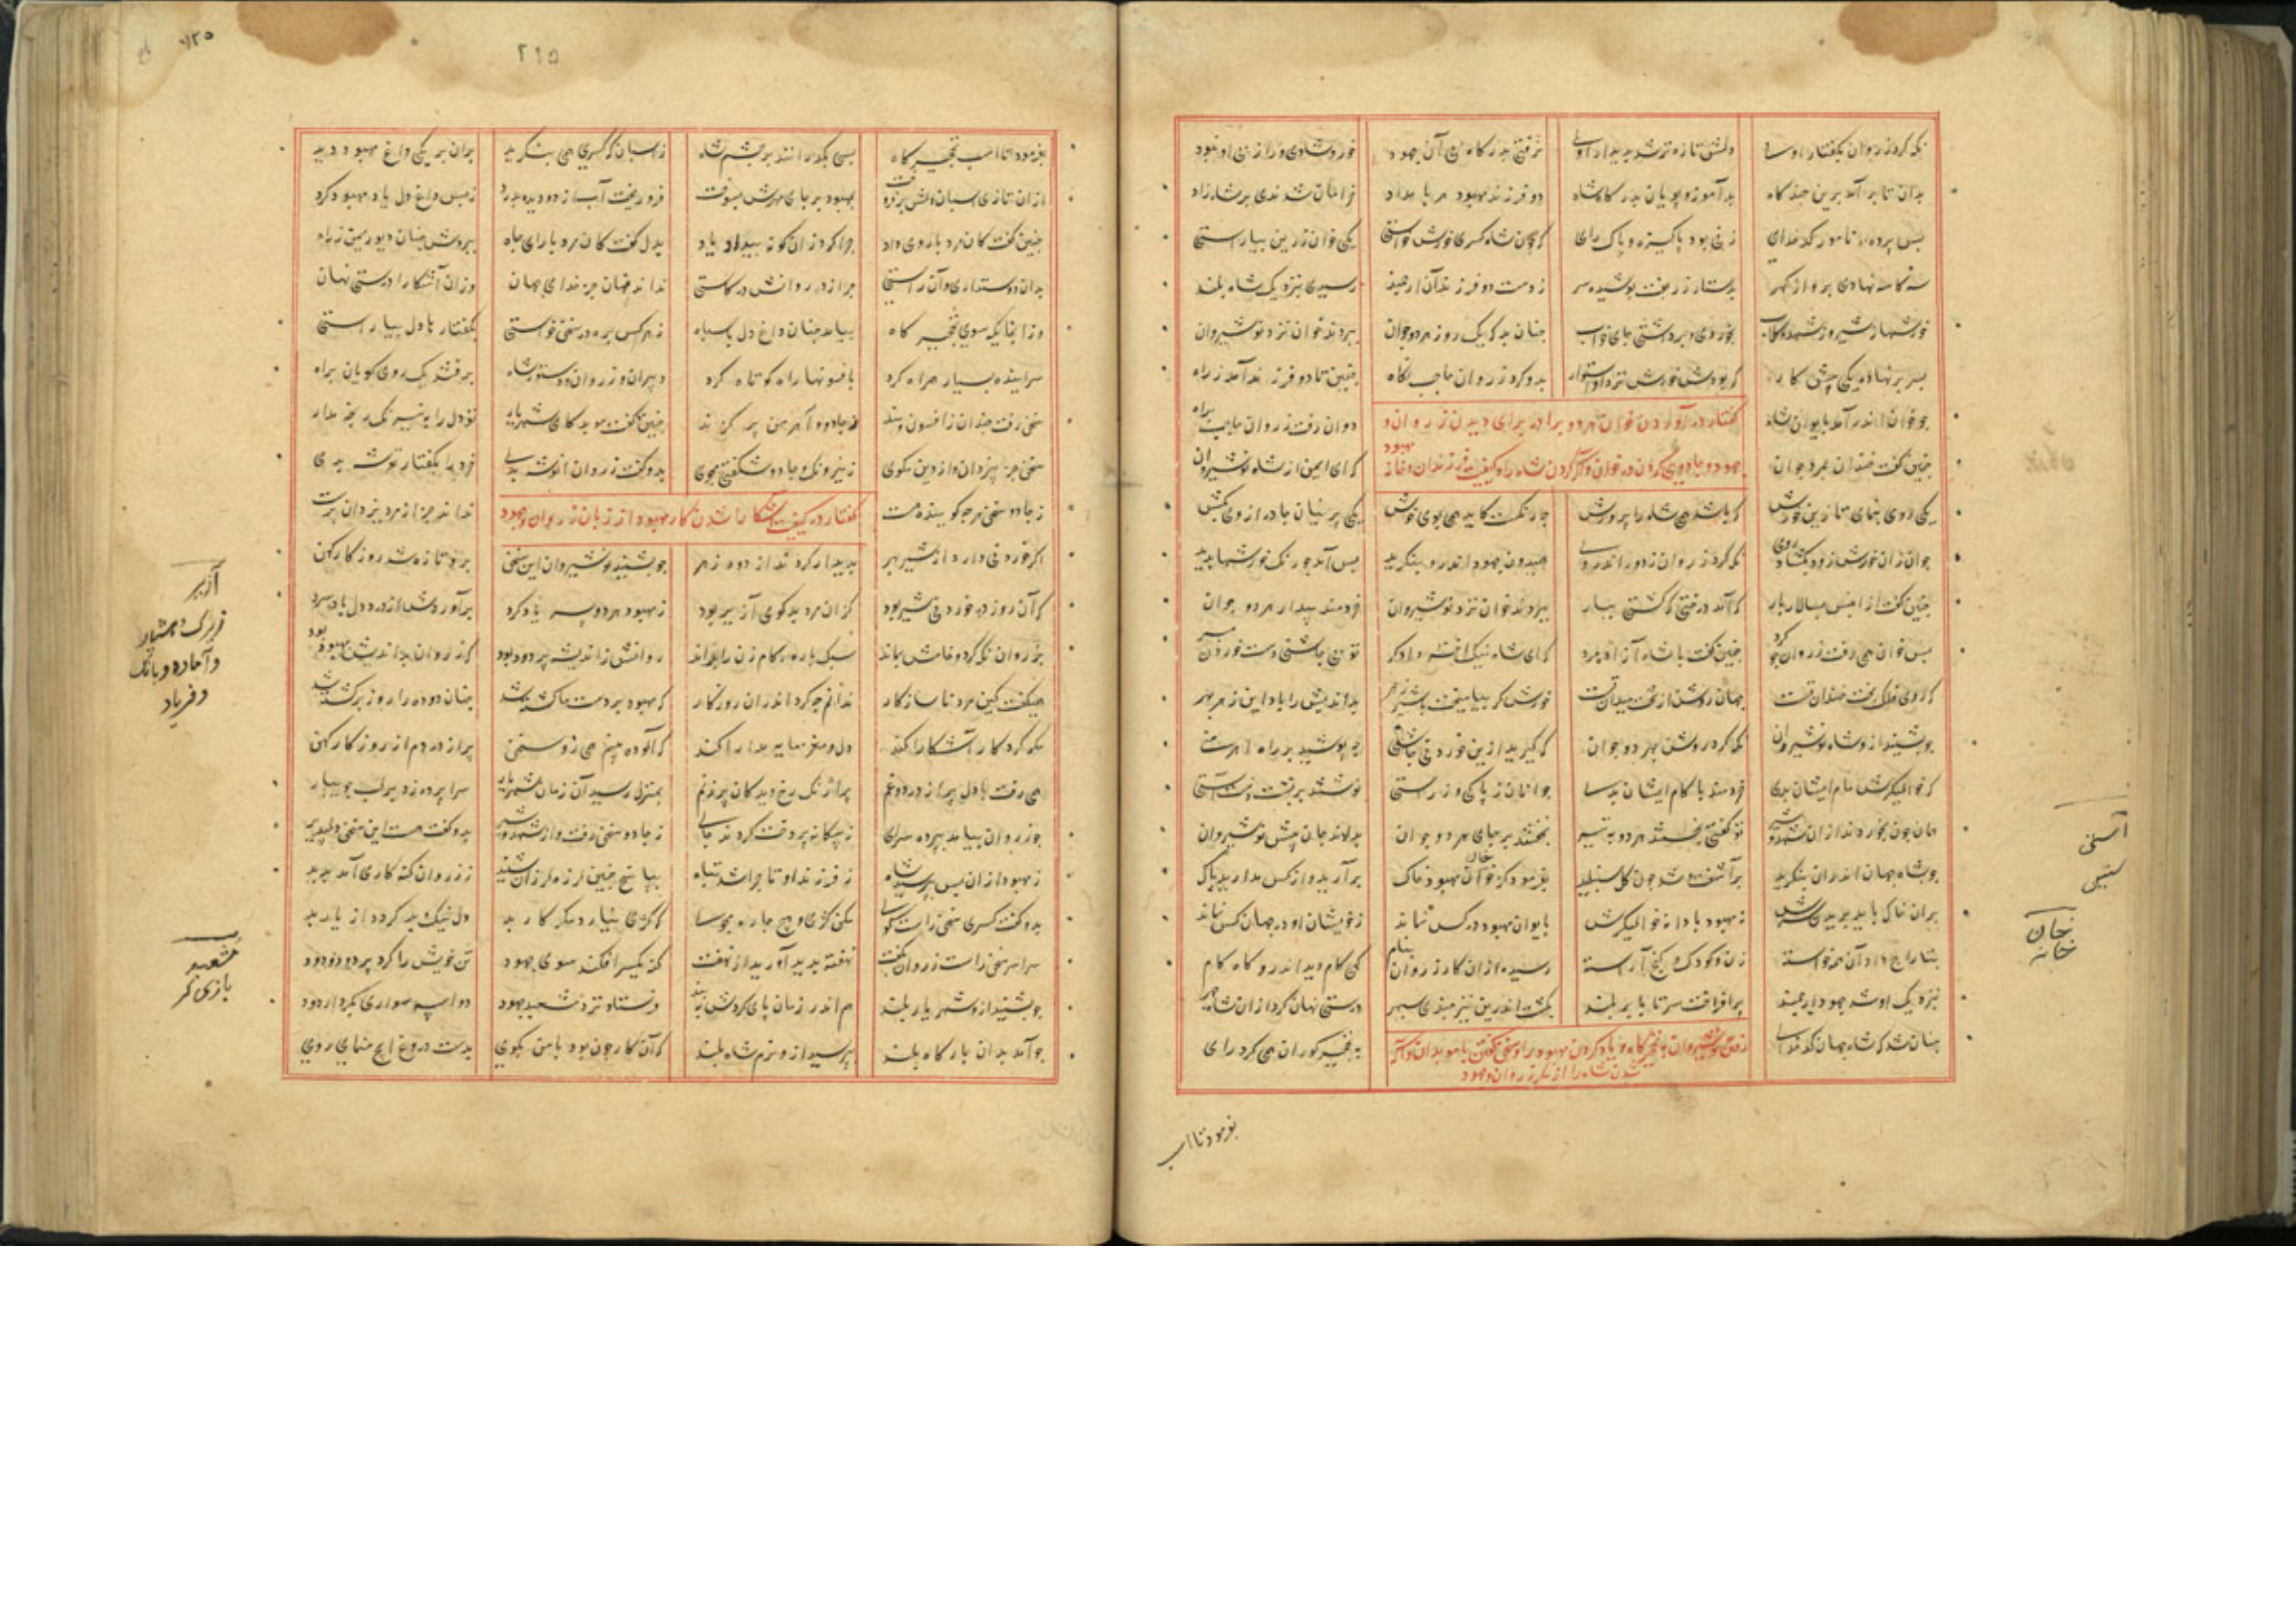 نکه کرد زروان بکفتار اوی دلش تازه‌تر شد بدیدار اوی نرفتی بدرکاه بی آن جهود خور و شادی و راز بی او نبود
بدان تا برآمد برین چند کاه بدآموز پویان بدرکاه شاه دو فرزند مهبود هر بامداد خرامان شدندی بر شاه راد
پس پرده نامور کدخدای زنی بود پاکیزه و پاک رای که چون شاه کسری خورش خواستی یکی خوان زرین بیاراستی
سه کاسه نهادی برو از کهر بدستار زربفت پوشیده سر ز دست دو فرزند آن ارجمند رسیدی بنزدیک شاه بلند
خورشها ز شیر و ز شهد و کلاب بخوردی و برداشتی جای خواب چنان بد که یک روز هر دو جوان ببردند خوان نزد نوشیروان
بسر بر نهاده یکی پیش کار که بودش خورش نزد او استوار بدو کرد زروان حاجب نکاه چنین تا دو فرزند آمد ز راه
چو خوان اندر آمد بایوان شاه کفتار در آوردن خوان هر دو برادر برای دیدن زروان و دوان رفت زروان حاجب براه
چنین کفت خندان بمرد جوان جهود و جادوی کردن در خوان و آکه کردن شاه را که ای ایمن از شاه نوشیروان
یکی روی بنمای تا زین خورش که باشد همی شاه را پرورش چه رنکست کاید همی بوی خوش یکی پرنیان جادر از وی بکش
جوان زان خورش زود بکشاد روی نکه کرد زروان ز دور اندر اوی همیدون جهود اندرو بنکرید پس آمد چو رنک خورشها بدید
چنین کفت از ان پس بسالار بار که آمد درختی که کشتی ببار ببردند خوان نزد نوشیروان خردمند بیدار هر دو جوان
پس خوان همی رفت زروان چو کرد چنین کفت با شاه آزاد مرد که ای شاه نیک اختر و دادکر تو بی چاشنی دست خوردن مبر
که روی فلک بخت خندان تست جهان روشن از تخت و میدان تست خورش کر بیامیخت با شیر زهر بداندیش را باد این زهر بهر
چو بشنید ازو شاه نوشیروان نکه کرد روشن بهر دو جوان که کیرید ازین خوردنی چاشنی
که خوالیکرش مام ایشان بدی خردمند با کام ایشان بدی جوانان ز پاکی و ز راستی نوشتند بر پشت دست آستی
همان چون بخوردند از ان شهد و شیر تو کفتی بخستند هر دو به تیر بخفتند بر جای هر دو جوان بدادند جان پیش نوشیروان
چو شاه جهان اندران بنکرید برآشفت و شد چون کل شنبلید بفرمود کز خوان مهبود خاک برآرید و از کس مدارید باک
بران خاک باید بریدن سرش نه مهبود بادا نه خوالیکرش بایوان مهبود در کس نماند ز خویشان او در جهان کس نماند
بتاراج داد آن همه خواسته زن و کودک و کنج آراسته رسیده از ان کار زروان بکام کهی کام دید اندرو کاه نام
بنزدیک او شد جهود ارجمند برافراخت سر تا بابر بلند بکشت اندرین نیز چندی سپهر درستی نهان کرد از ان شاه چهر
چنان شد که شاه جهان کدخدای رفتن نوشیروان به نخجیرکاه و یاد کردن مهبود را و سخن کفتن با موبدان و آکه به نخجیر کوران همی کرد رای
شدن شاه را از مکر زروان و جهود
بفرمود تا اسب
آستی
آستین
خان
خانه
۲۱۵
بفرمود تا اسب نخجیرکاه بسی بکذرانند بر چشم شاه ز اسبان که کسری همی بنکرید بران بر یکی داغ مهبود دید
از ان تازی اسبان دلش بر فروخت بمهبود بر جای مهرش بسوخت فرو ریخت آب از دو دیده بدرد ز بس داغ دل یاد مهبود کرد
چنین کفت کان مرد با روی و داد چرا کرد زان کونه بیداد یاد بدل کفت کان مرد با رای جاه ببردش چنان دیو ریمن ز راه
بدان دوستداری و آن راستی چرا زد روانش در کاستی نداند جهان جز خدای جهان وزان آشکارا درستی نهان
وز آنجایکه سوی نخجیرکاه بیامد چنان داغ دل با سپاه ز هر کس بره در سخن خواستی بکفتار با دل بیاراستی
سراینده بسیار همراه کرد بافسونها راه کوتاه کرد دبیران و زروان و دستور شاه برفتند یک روی کویان براه
سخن رفت چندان ز افسون و بند ز جادو و آهرمن پر کزند چنین کفت موبد که ای شهریار تو دل را به نیرنک رنجه مدار
سخن جز بیزدان و از دین مکوی ز نیرنک و جادو شکفتی مجوی بدو کفت زروان انوشه بدی خرد را بکفتار توشه بدی
ز جادو سخن هرچه کویند هست کفتار در کیفیت آشکارا شدن کار مهبود از زبان زروان و جهود نداند جز از مرد یزدان پرست
اکر خوردنی دارد از شیر بهر پدیدار کرد ند از دور زهر چو بشنید نوشیروان این سخن برو تازه شد روزکار کهن
که آن روز در خوردنی شیر بود کز ان مرد بدکوی آزیر بود ز مهبود و هر دو پسر یاد کرد برآورد از درد دل باد سرد
بزروان نکه کرد و خامش بماند سبک باره کامزن را براند روانش ز اندیشه پر دود بود که زروان بداندیش مهبود بود
همی کفت کین مرد ناسازکار ندانم چه کرد اندران روزکار که مهبود بر دست ما کشته شد چنان دوده را روز برکشته شد
مکر کردکار آشکارا کند دل و مغز ما را مدارا کند که آلوده بینم همی زو سخن پر از دردم از روزکار کهن
همی رفت با دل پر از درد و غم پر آژنک رخ دیدکان پر ز نم بمنزل رسید آن زمان شهریار سراپرده زد بر لب جویبار
چو زروان بیامد بپرده سرای ز بیکانه پردخت کردند جای ز جادو سخن رفت و از شهد و شیر بدو کفت هست این سخن دلپذیر
ز مهبود از ان پس بپرسید شاه ز فرزند او تا چرا شد تباه بپاسخ چنین لرزه لرزان شنید ز زروان کنه کاری آمد پدید
بدو کفت کسری سخن راست کوی مکن کژی و هیچ چاره مجوی که کژی نیارد مکر کار بد دل نیک بد کردد از یار بد
سراسر سخن راست زروان بکفت نهفته پدید آورید از نهفت کنه یکسر افکند سوی جهود تن خویش را کرد پر درد و دود
چو بشنید ازو شهریار بلند هم اندر زمان پای کردش به بند فرستاد نزد مشعبد جهود دو اسپه سواری بکردار دود
چو آمد بدان بارکاه بلند بپرسید ازو نرم شاه بلند که آن کار چون بود با من بکوی بدست دروغ ایچ منمای روی
آزیر
زیرک و هشیار
و آماده و بانک
و فریاد
مشعبد
بازی کر